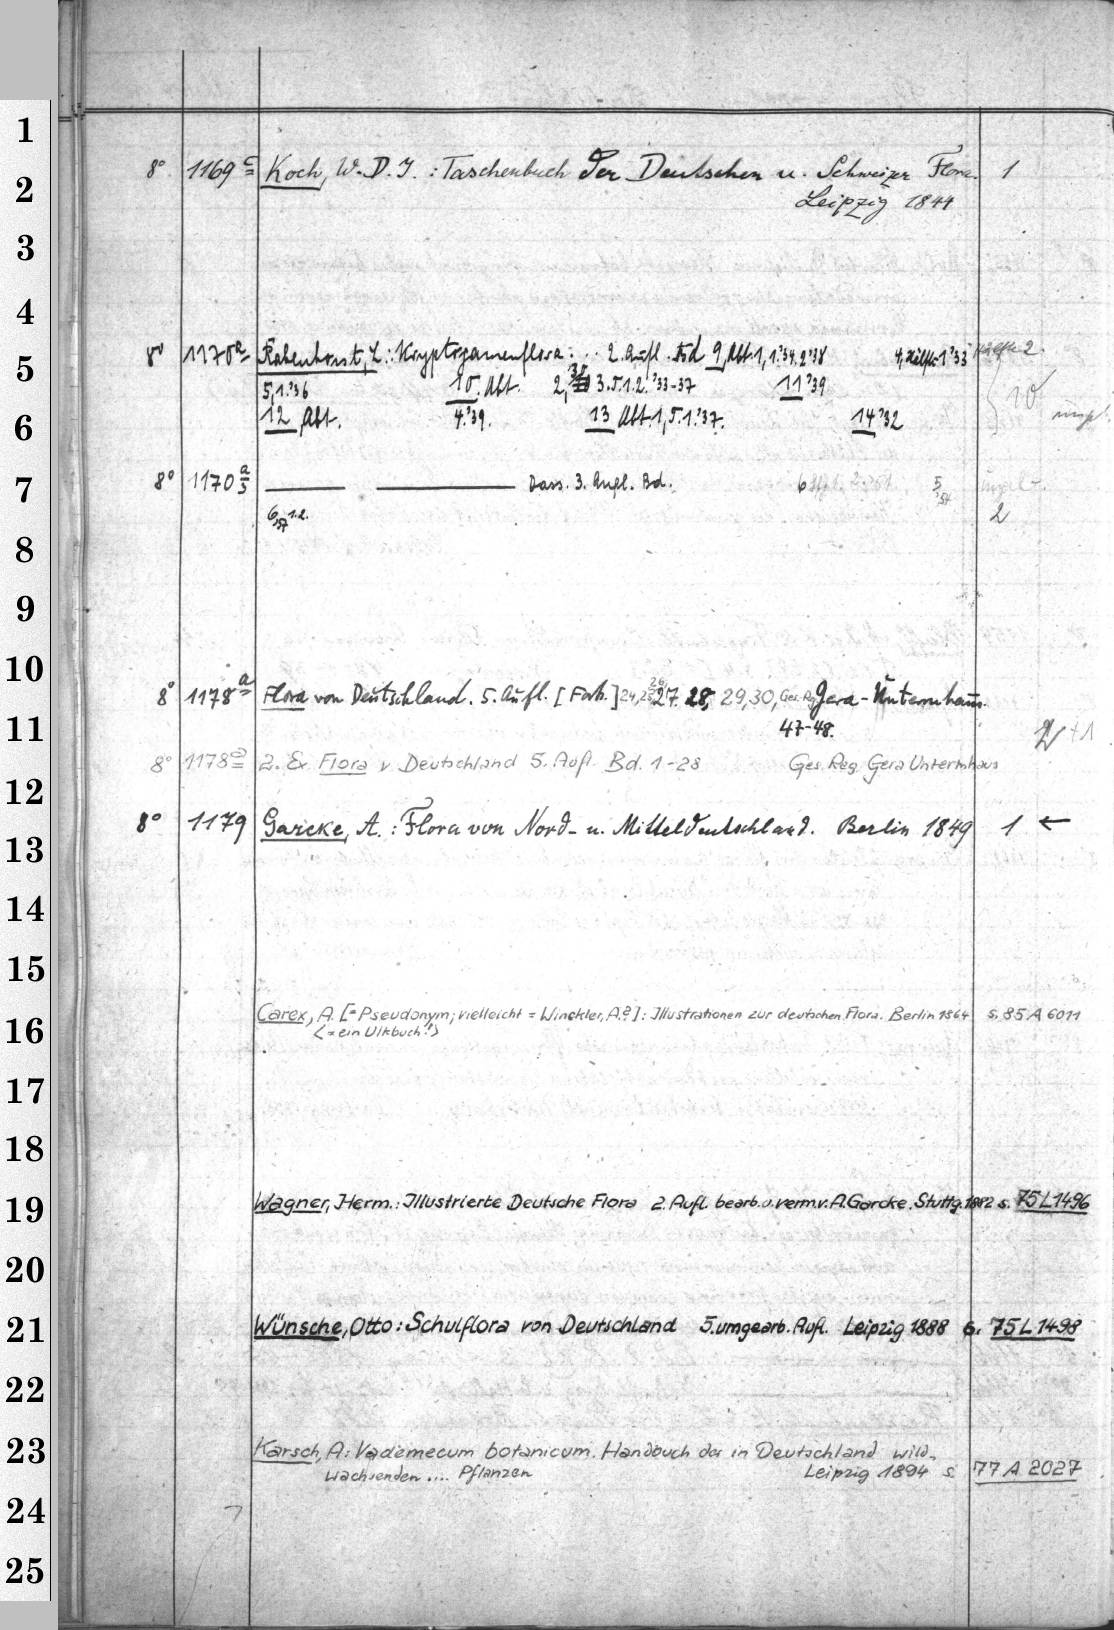 1
2
3
4
5
6
7
8
9
10
11
12
13
14
15
16
17
18
19
20
21
22
23
24
25
8° 1169 c Koch, W. D. J. : Taschenbuch der Deutschen u. Schweizer Flora. 1
Leipzig 1844
8° 1170 a Rabenhorst, L.: Kryptogamenflora: .. 2. Aufl. Bd 9, Abt. 1, 1.'34. 2.'38 4, Hälfte 1 '33 Hälfte 2.
5, 1.'36 10. Abt. 2, 3. 5. 1. 2. '33-37 11 '39
12 Abt. 4.'39. 13 Abt. 1, 5. 1.'37. 14 '32
8° 1170 a/3 Dass. 3. Aufl. Bd. 6 5
6 1.2. 2
8° 1178 a Flora von Deutschland. 5. Aufl. [Forts.] 24, 25, 26, 27. 28, 29, 30, Ges. Rg. Gera-Untermhaus.
47-48.
2 +1
8° 1178 a 2. Ex Flora v. Deutschland 5. Aufl. Bd. 1-28 Ges. Reg. Gera Untermhaus
8° 1179 Garcke, A. : Flora von Nord- u. Mitteldeutschland. Berlin 1849 1 ←
Carex, A. [= Pseudonym; vielleicht = Winckler, A.?] : Illustrationen zur deutschen Flora. Berlin 1864 s. 85 A 6011
<= ein Ulkbuch!>
Wagner, Herm.: Illustrierte Deutsche Flora 2. Aufl. bearb. u. verm. v. A. Garcke. Stuttg. 1882 s. 75 L 1496
Wünsche, Otto: Schulflora von Deutschland 5. umgearb. Aufl. Leipzig 1888 s. 75 L 1498
Karsch, A: Vademecum botanicum. Handbuch der in Deutschland wild-
wachsenden .... Pflanzen Leipzig 1894 s. 77 A 2027